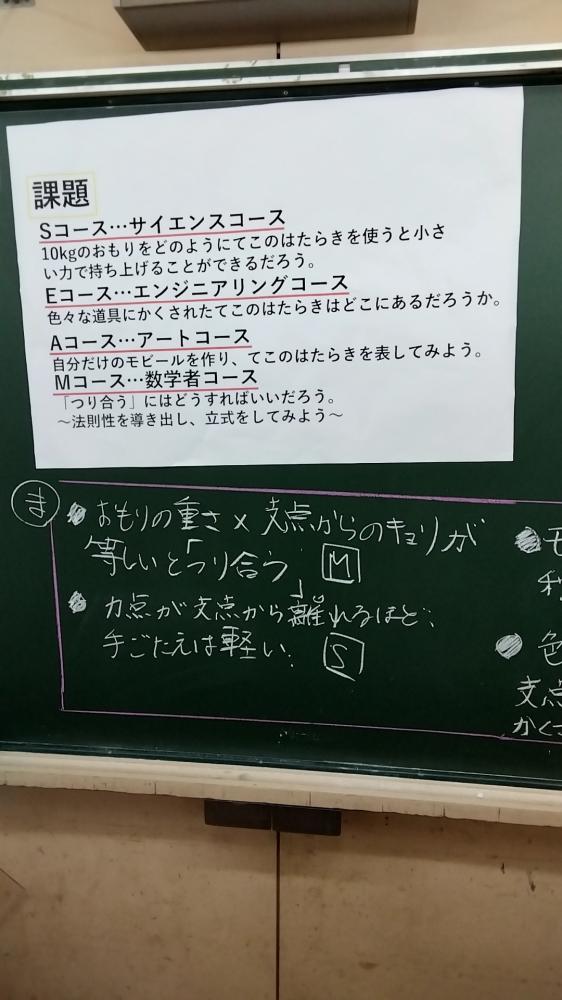 課題
Sコース…サイエンスコース
10kgのおもりをどのようにてこのはたらきを使うと小さ
い力で持ち上げることができるだろう。
Eコース…エンジニアリングコース
色々な道具にかくされたてこのはたらきはどこにあるだろうか。
Aコース…アートコース
自分だけのモビールを作り、てこのはたらきを表してみよう。
Mコース…数学者コース
「つり合う」にはどうすればいいだろう。
～法則性を導き出し、立式をしてみよう～
ま
おもりの重さ×支点からのキョリが
等しいと「つり合う」 M
力点が支点から離れるほど
手ごたえは軽い。 S
モ
利
色
支点
かくさ